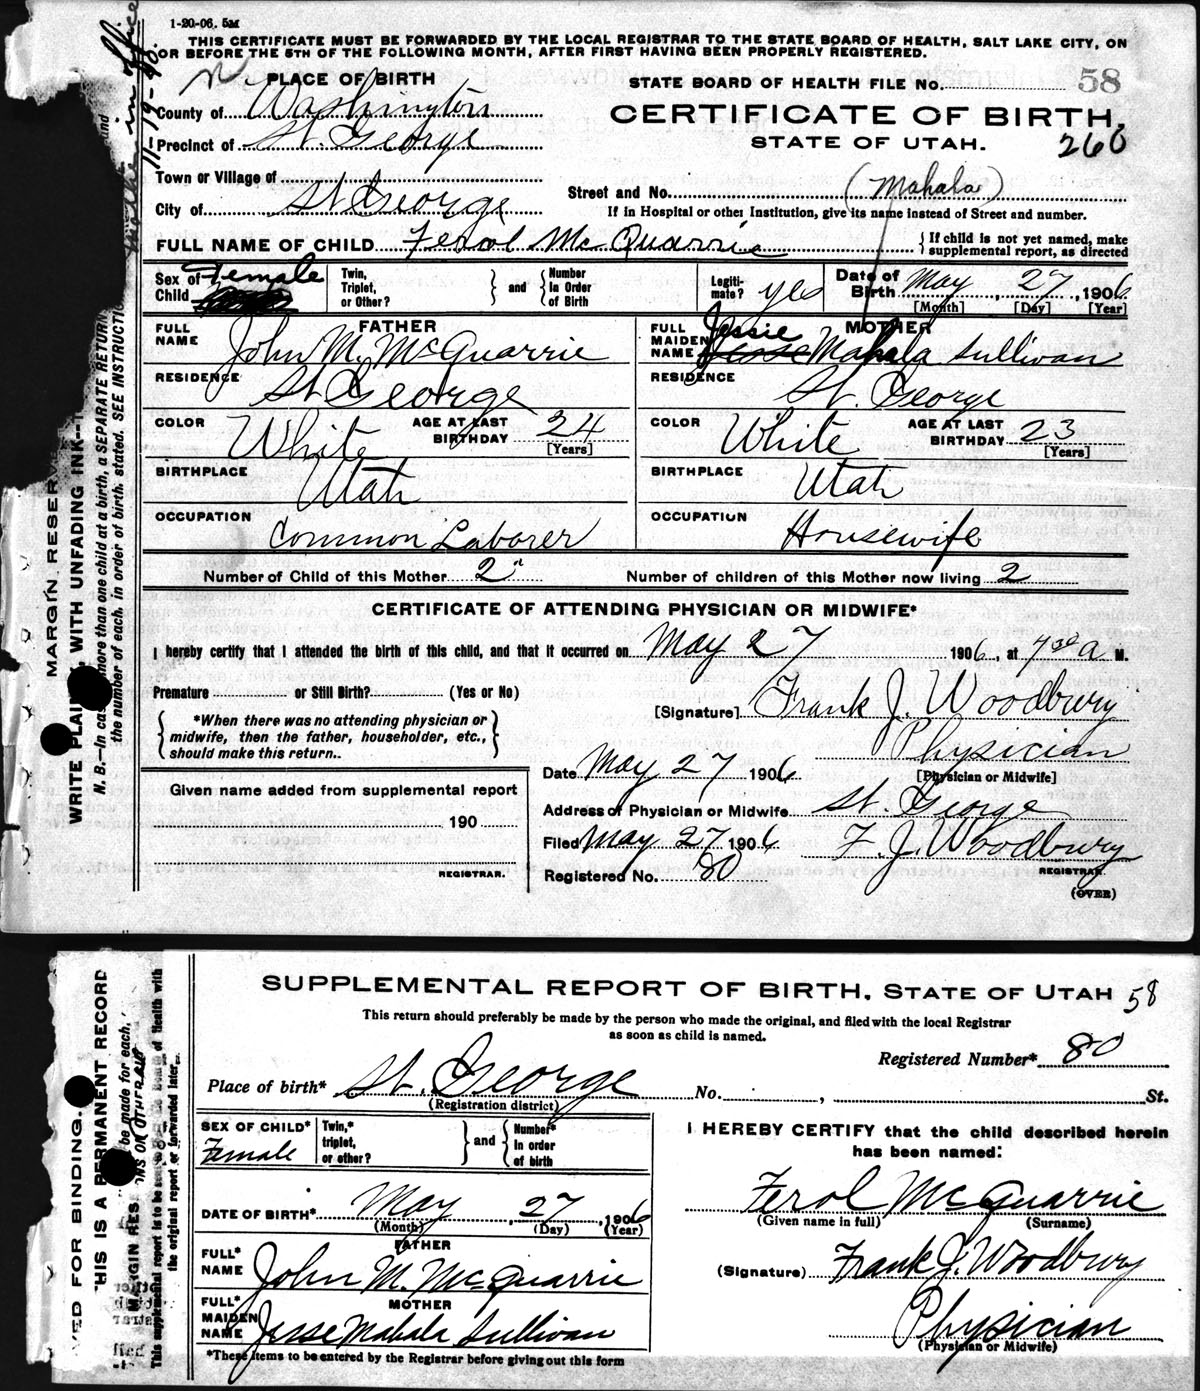 1-20-06. 5M
THIS CERTIFICATE MUST BE FORWARDED BY THE LOCAL REGISTRAR TO THE STATE BOARD OF HEALTH, SALT LAKE CITY, ON
OR BEFORE THE 5TH OF THE FOLLOWING MONTH, AFTER FIRST HAVING BEEN PROPERLY REGISTERED.
PLACE OF BIRTH
STATE BOARD OF HEALTH FILE No. 58
County of Washington
CERTIFICATE OF BIRTH,
Precinct of St. George
STATE OF UTAH. 260
Town or Village of
Street and No. (Mahala)
City of St George
If in Hospital or other Institution, give its name instead of Street and number.
FULL NAME OF CHILD Ferol McQuarrie { If child is not yet named, make supplemental report, as directed
Sex of Child Female
Twin, Triplet, or Other? } and { Number In Order of Birth
Legitimate? yes
Date of Birth May, 27, 1906
[Month] [Day] [Year]
FATHER
FULL NAME John M. McQuarrie
RESIDENCE St. George
COLOR White AGE AT LAST BIRTHDAY 24
[Years]
BIRTHPLACE Utah
OCCUPATION Common Laborer
MOTHER
FULL MAIDEN NAME Jessie Jesse Mahala Sullivan
RESIDENCE St. George
COLOR White AGE AT LAST BIRTHDAY 23
[Years]
BIRTHPLACE Utah
OCCUPATION Housewife
Number of Child of this Mother 2" Number of children of this Mother now living 2
CERTIFICATE OF ATTENDING PHYSICIAN OR MIDWIFE*
I hereby certify that I attended the birth of this child, and that it occurred on May 27 1906, at 7 30 a M.
Premature or Still Birth? (Yes or No)
[Signature] Frank J. Woodbury
{ *When there was no attending physician or midwife, then the father, householder, etc., should make this return. }
Physician
[Physician or Midwife]
Date May 27 1906
Given name added from supplemental report
190
REGISTRAR.
Address of Physician or Midwife St. George
Filed May 27 1906 F. J. Woodbury
REGISTRAR.
Registered No. 80
(OVER)
11-19-40.
MARGIN RESER
WRITE PLAI , WITH UNFADING INK—
N. B.—In cas more than one child at a birth, a SEPARATE RETURN and
the number of each, in order of birth, stated. SEE INSTRUCTIO
SUPPLEMENTAL REPORT OF BIRTH, STATE OF UTAH 58
This return should preferably be made by the person who made the original, and filed with the local Registrar
as soon as child is named.
Registered Number* 80
Place of birth* St. George No. , St.
(Registration district)
SEX OF CHILD* Female
Twin,* triplet, or other? } and { Number* In order of birth
DATE OF BIRTH* May, 27, 1906
(Month) (Day) (Year)
FATHER
FULL* NAME John M. McQuarrie
MOTHER
FULL* MAIDEN NAME Jesse Mahala Sullivan
*These items to be entered by the Registrar before giving out this form
I HEREBY CERTIFY that the child described herein
has been named:
Ferol McQuarrie
(Given name in full) (Surname)
(Signature) Frank J. Woodbury
Physician
(Physician or Midwife)
VED FOR BINDING.
THIS IS A PERMANENT RECORD
MARGIN RES
be made for each,
the original report or forwarded later.